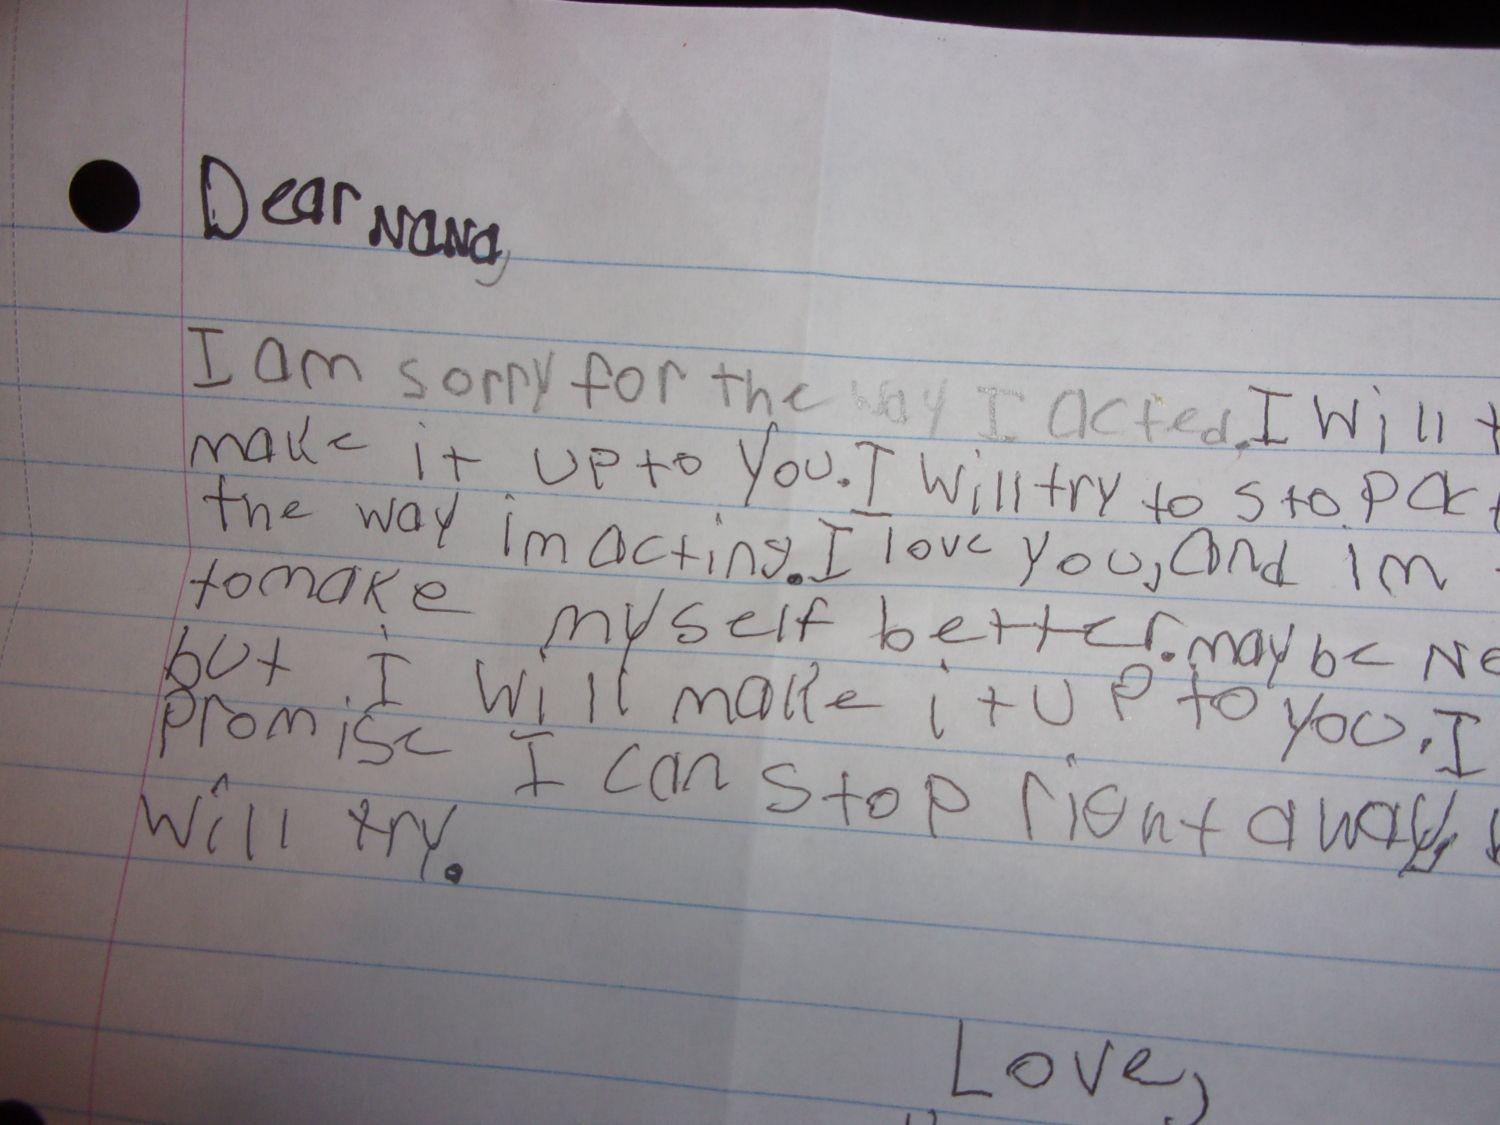 Dear Nana,
I am sorry for the way I acted. I Will
make it up to you. I Will try to stop
the way im acting. I love you, and im
to make myself better. may be
but I will make it up to you. I
promise I can stop right away,
will try.
Love,